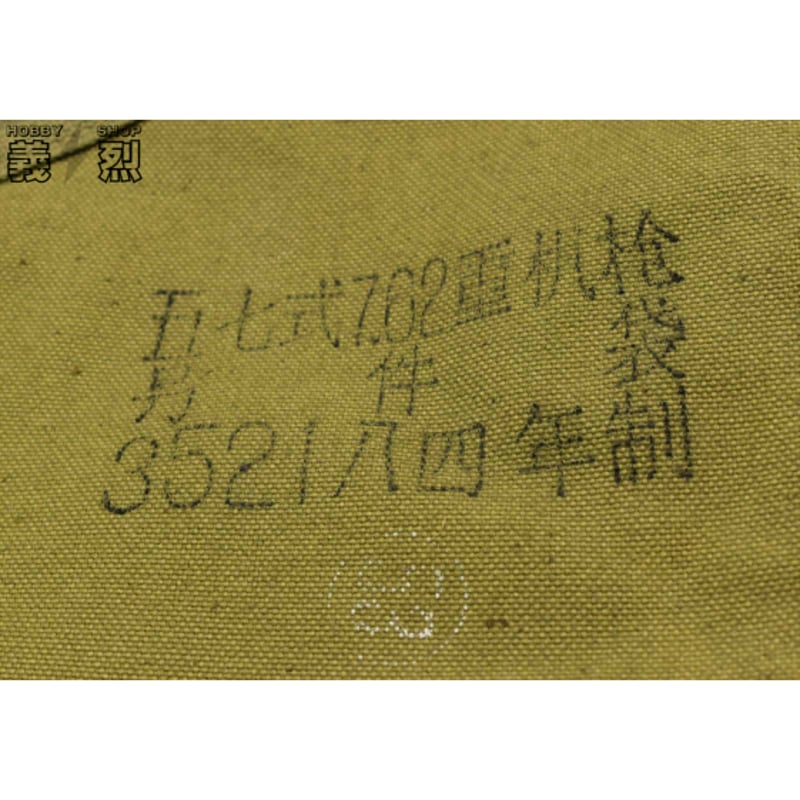 HOBBY SHOP
義烈
五七式7.62重机枪
件 袋
3521八四年制